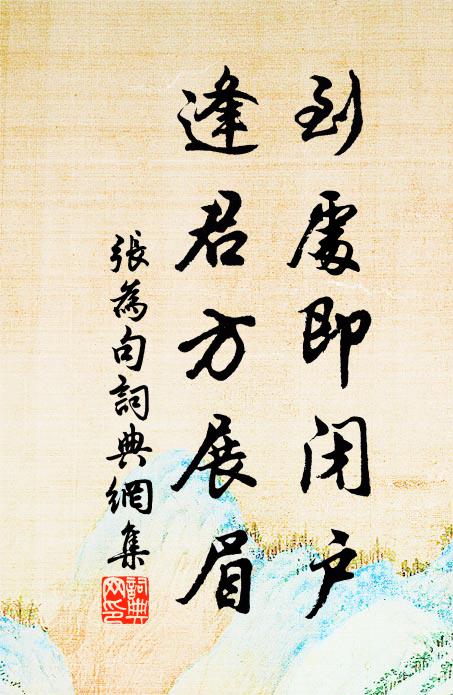 到處即閉戶
逢君方展眉
張為句詞典網集
詞典網印